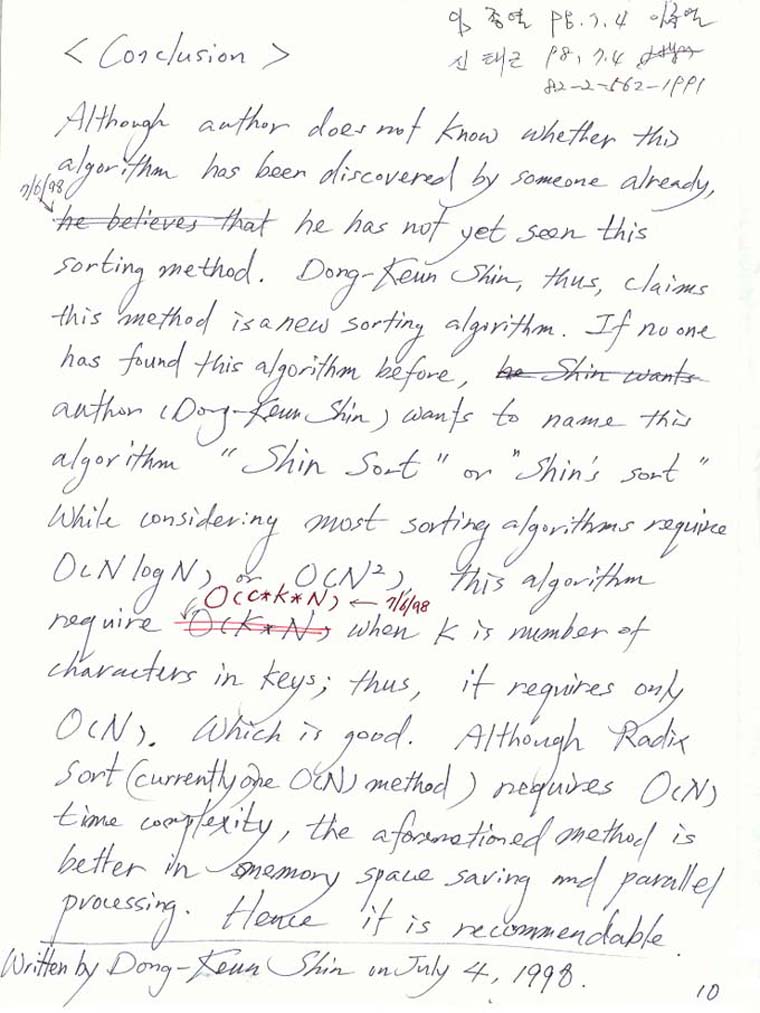 임종열 98.7.4 임종열
< Conclusion >
신태근 98.7.4
82-2-562-1991
Although author does not know whether this
algorithm has been discovered by someone already,
7/6/98
he believes that he has not yet seen this
sorting method. Dong-Keun Shin, thus, claims
this method is a new sorting algorithm. If no one
has found this algorithm before, he Shin wants
author (Dong-Keun Shin) wants to name this
algorithm "Shin Sort" or "Shin's sort"
While considering most sorting algorithms require
O(N log N) or O(N²), this algorithm
O(C*K*N) ← 7/6/98
require O(K*N) when K is number of
characters in keys; thus, it requires only
O(N). Which is good. Although Radix
Sort (currently one O(N) method) requires O(N)
time complexity, the aforemetioned method is
better in memory space saving and parallel
processing. Hence it is recommendable.
Written by Dong-Keun Shin on July 4, 1998.
10